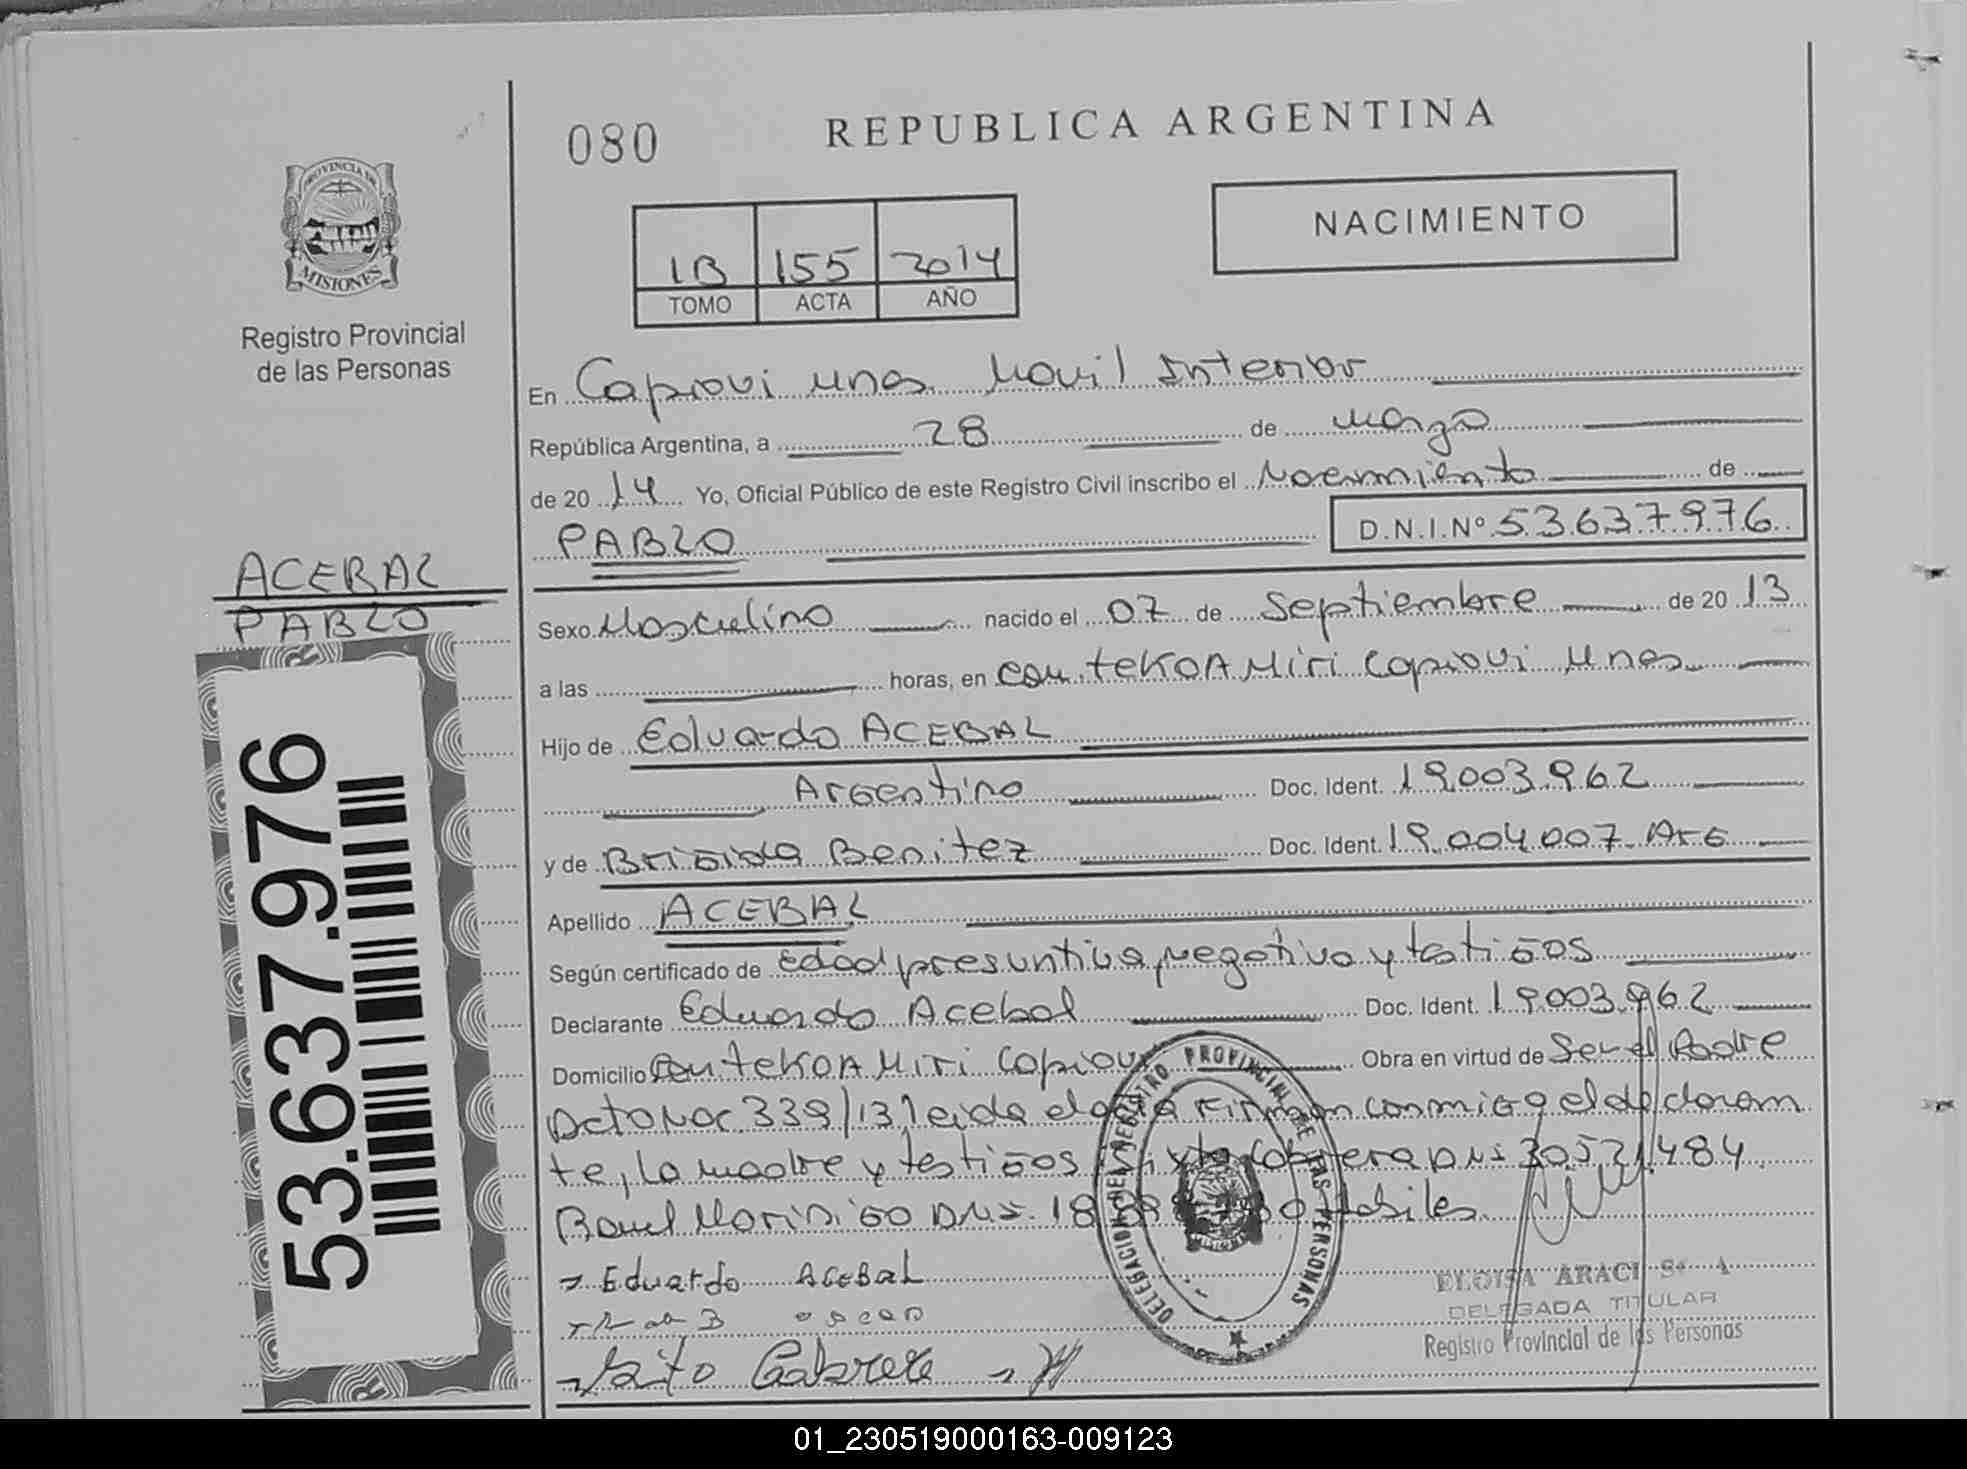 080
REPUBLICA ARGENTINA
NACIMIENTO
PROVINCIA DE
MISIONES
Registro Provincial
de las Personas
1B 155 2014
TOMO ACTA AÑO
En Capiovi Mnes. Movil Interior
República Argentina, a 28 de Marzo
de 20 14 Yo, Oficial Público de este Registro Civil inscribo el Nacimiento de
PABLO D.N.I.Nº 53.637.976
ACEBAL
PABLO
Sexo Masculino nacido el 07 de Septiembre de 20 13
a las horas, en Com. tekoA Miri Capiovi Mnes
Hijo de Eduardo ACEBAL
Argentino Doc. Ident. 19.003.962
y de Brigida Benitez Doc. Ident. 19.004.007 Arg
Apellido ACEBAL
Según certificado de edad presuntiva, negativo y testigos
Declarante Eduardo Acebal Doc. Ident. 19.003.962
Domicilio Com tekoA Miri Capiovi Obra en virtud de Ser el Padre
339/13, leida el acta Firman conmigo el declaran
te, la madre y testigos Cabrera DNI 30.521.484
DNI. 18 habiles.
Eduardo AceBaL
Cabrera
53.637.976
DELEGACION DEL REGISTRO PROVINCIAL DE LAS PERSONAS
MISIONES
ELOISA ARACI
DELEGADA TITULAR
Registro Provincial de las Personas
01_230519000163-009123